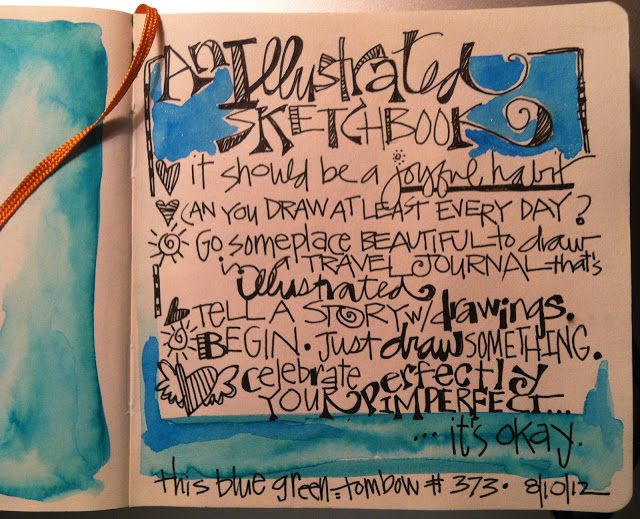 An Illustrated
SKETCHBOOK
it should be a joyful habit
CAN YOU DRAW AT LEAST EVERY DAY?
Go someplace BEAUTIFUL to draw
in a TRAVEL JOURNAL that's
illustrated
TELL A STORY w/ drawings.
BEGIN. Just draw SOMETHING.
celebrate perfectly
YOUR IMPERFECT...
... it's okay.
this blue green = tombow # 373. 8/10/12